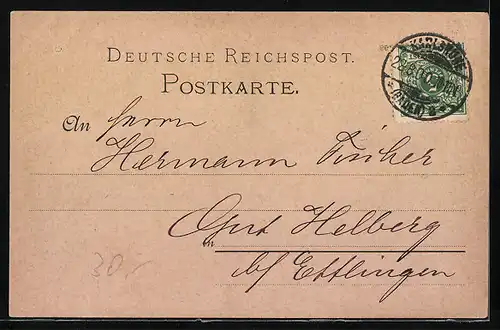 DEUTSCHE REICHSPOST.
POSTKARTE.
KARLSRUHE
(BADEN)
An Herrn
Hermann Fischer
Gut Helberg
in
b/ Ettlingen
30.-